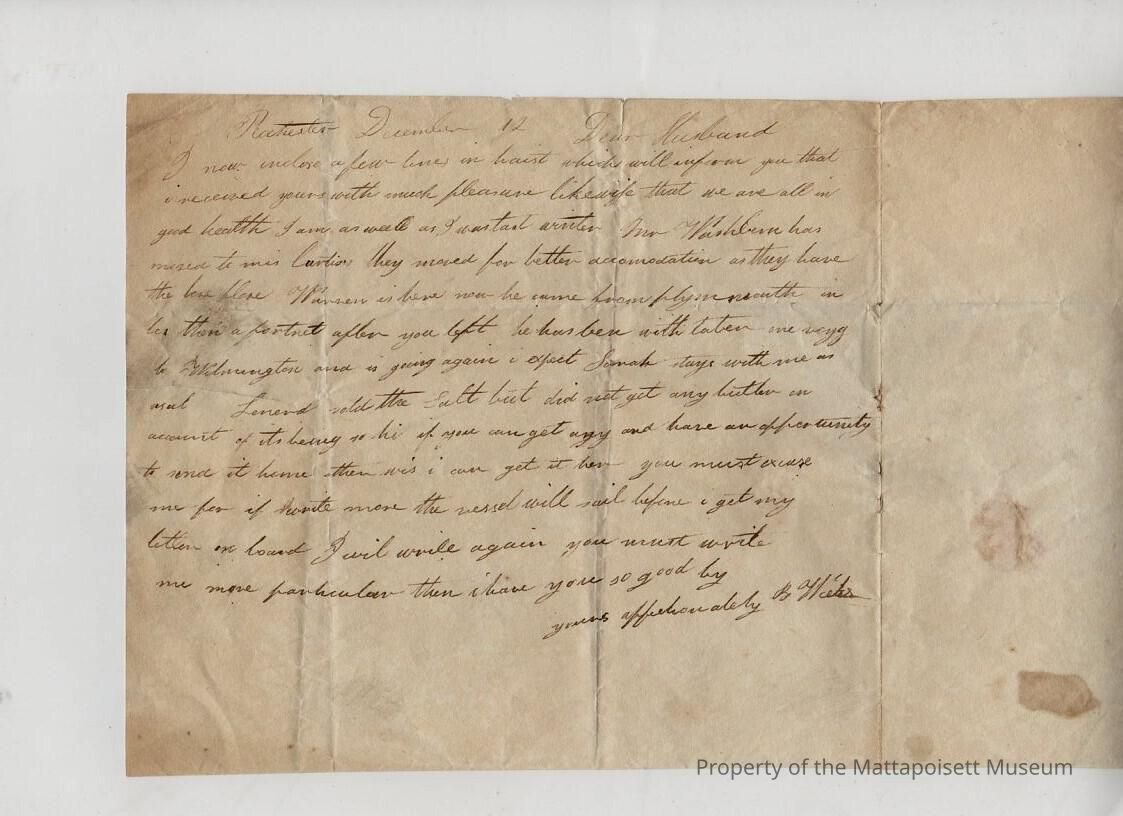 Rochester December 12 Dear Husband
I now inclose a few lines in haist which will inform you that
i received yours with much pleasure likewise that we are all in
good health I am as well as I was last writen Mr Washburn has
moved to mis they moved for better accomodation as they have
the Warren is here now he came from plymmouth in
les then a fortnet after you left he has ben with taber one voyg
to Wilmington and is going again i expect Sarah stays with me as
usal sold the Salt but did not get any butter on
account of its being so hi if you can get any and have an opportunity
to send it home then i can get it her you must excuse
me for if I write more the vessel will sail before i get my
letter on board I wil write again you must write
me more particular then i have you so good by
yours affectionately B
Property of the Mattapoisett Museum